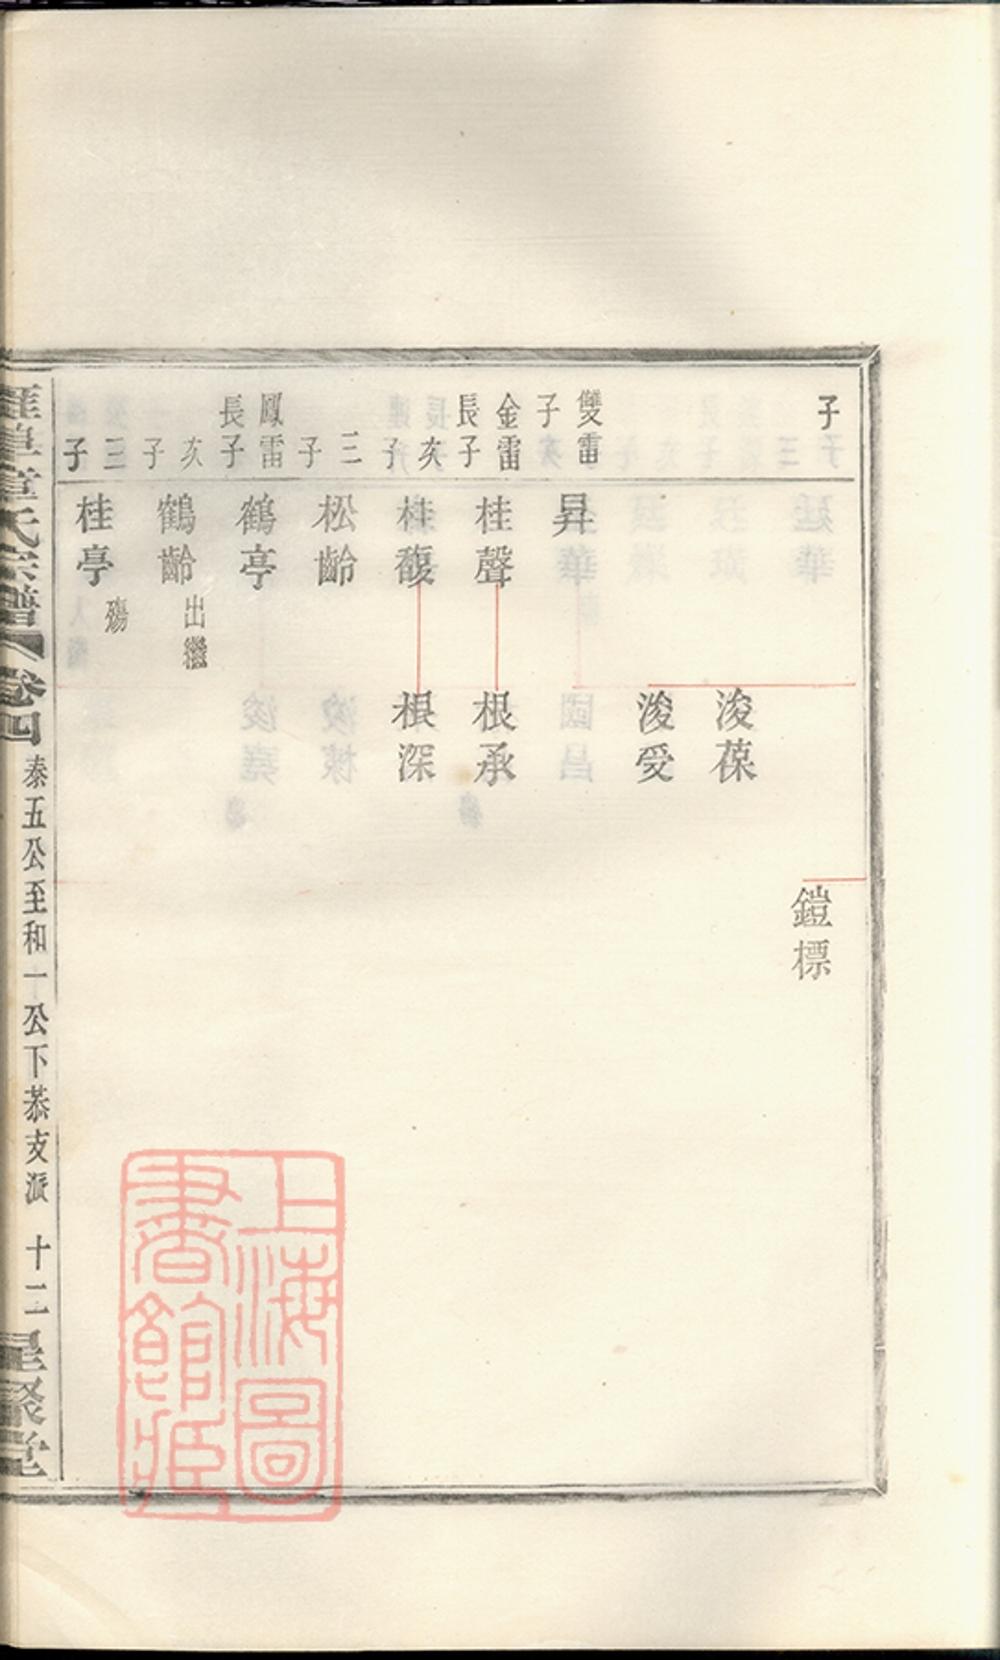 子
鎧標
浚葆
浚受
雙雷
子
昇
金雷
長子
桂聲
根承
次
子
桂馥
根深
三
子
松齡
鳳雷
長子
鶴亭
次
子
鶴齡
出繼
三
子
桂亭
殤
章氏宗譜
卷四
泰五公至和一公下恭支派
十二
星聚堂
上海圖
書館藏